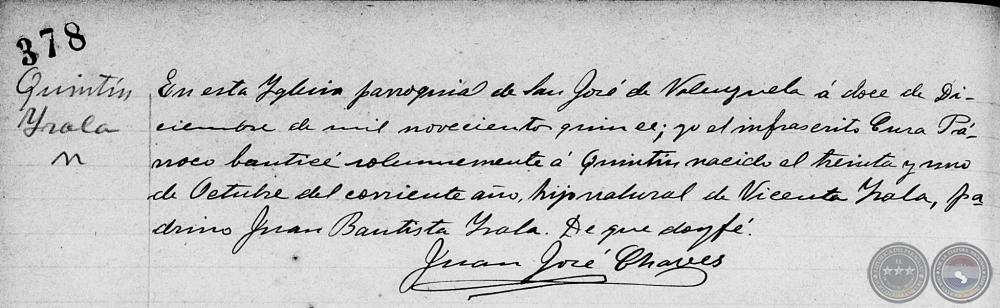 378
Quintín
Yrala
n
En esta Yglesia parroquial de San José de Valenzuela á doce de Di-
ciembre de mil novecientos quince; yo el infrascrito Cura Pá-
rroco bauticé solemnemente á Quintín, nacido el treinta y uno
de Octubre del corriente año, hijo natural de Vicenta Yrala, pa
drino Juan Bautista Yrala. De que doy fé.
Juan José Chaves